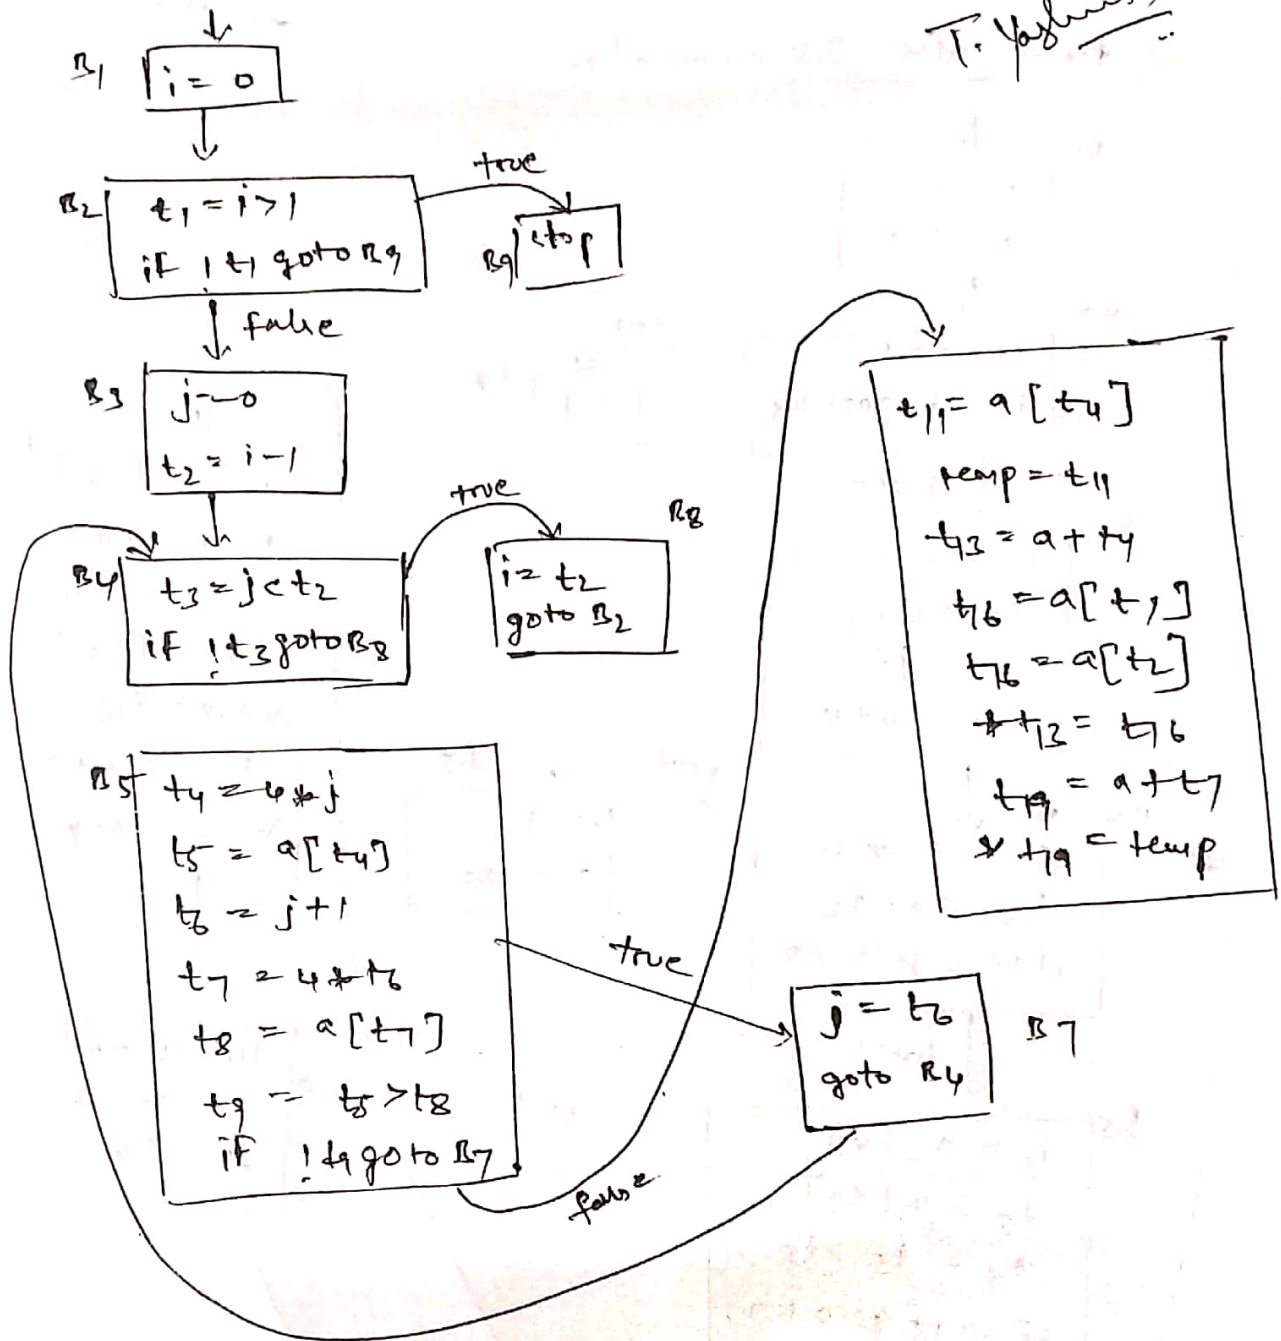 B1
i = 0
B2
t1 = i>1
if !t1 goto B9
true
B9
stop
false
B3
j=0
t2 = i-1
B4
t3 = j<t2
if !t3 goto B8
true
B8
i= t2
goto B2
B5
t4 = 4*j
t5 = a[t4]
t6 = j+1
t7 = 4*t6
t8 = a[t7]
t9 = t5>t8
if !t9 goto B7
true
false
t11= a[t4]
temp = t11
t13 = a+t4
t16 = a[t7]
t16 = a[t2]
*t13 = t16
t19 = a+t7
*t19 = temp
j = t6
goto B4
B7